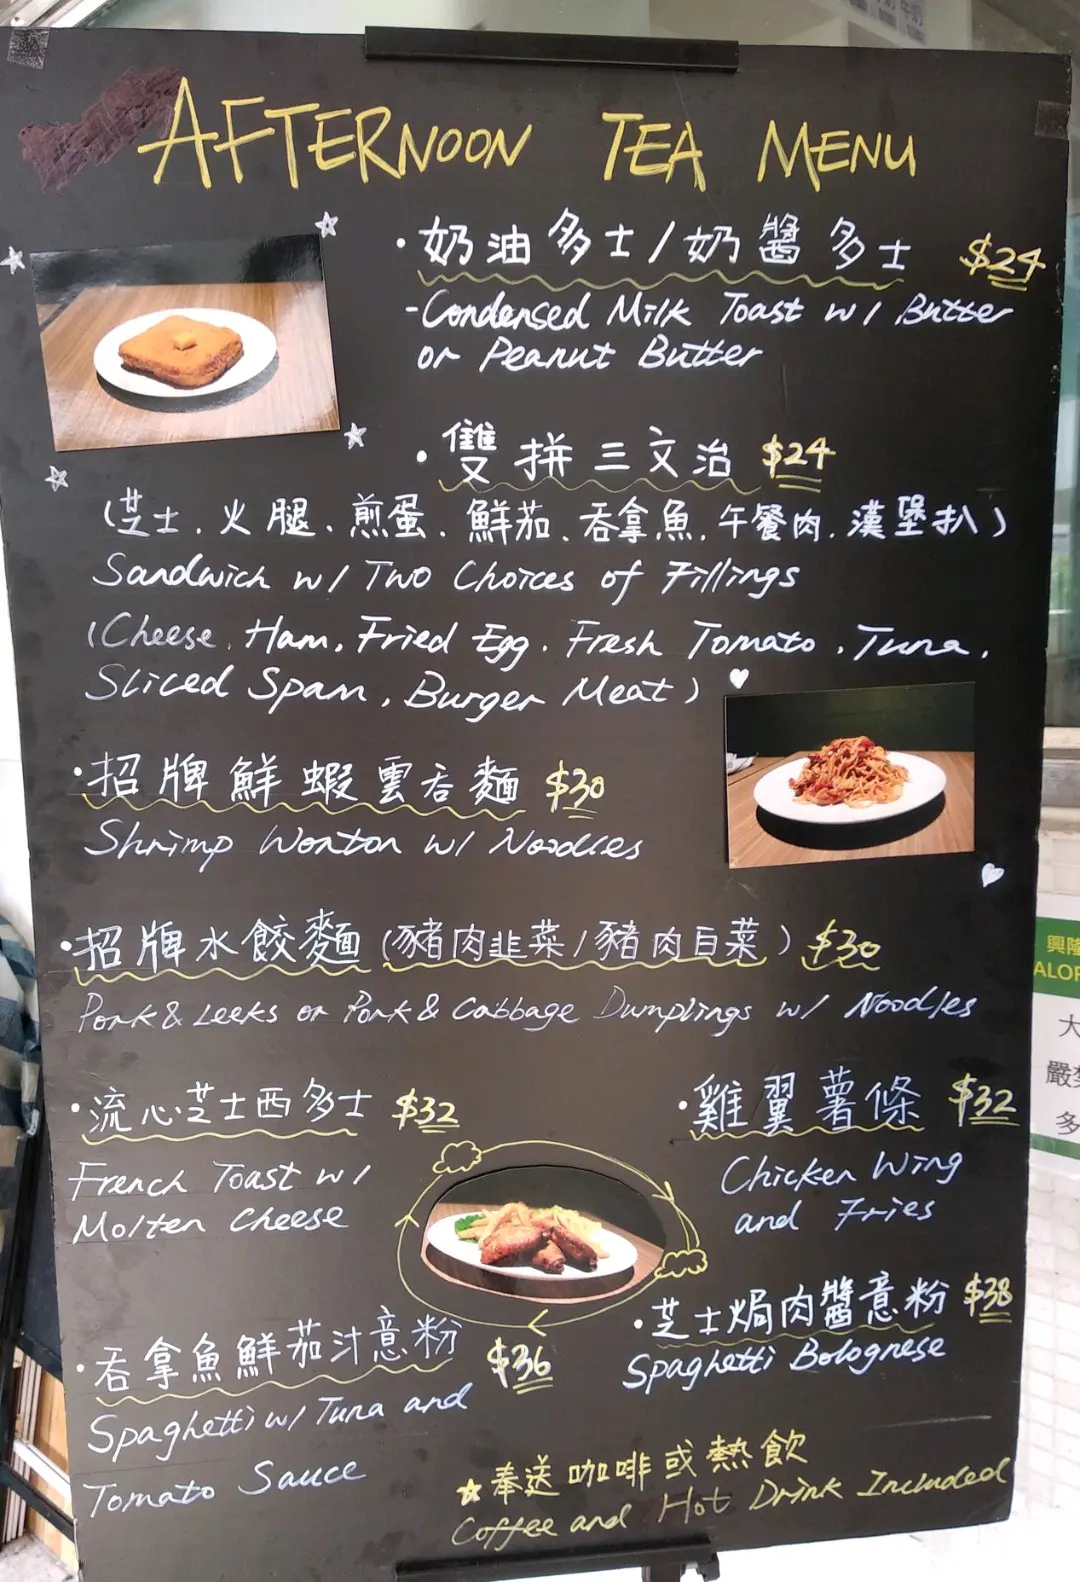 AFTERNOON TEA MENU
·奶油多士/奶醬多士 $24
-Condensed Milk Toast w/ Butter
or Peanut Butter
·雙拼三文治 $24
(芝士、火腿、煎蛋、鮮茄、吞拿魚、午餐肉、漢堡扒)
Sandwich w/ Two Choices of Fillings
(Cheese, Ham, Fried Egg, Fresh Tomato, Tuna,
Sliced Spam, Burger Meat)
·招牌鮮蝦雲吞麵 $30
Shrimp Wonton w/ Noodles
·招牌水餃麵(豬肉韭菜/豬肉白菜) $30
Pork & Leeks or Pork & Cabbage Dumplings w/ Noodles
·流心芝士西多士 $32
French Toast w/
Molten Cheese
·雞翼薯條 $32
Chicken Wing
and Fries
·吞拿魚鮮茄汁意粉 $36
Spaghetti w/ Tuna and
Tomato Sauce
·芝士焗肉醬意粉 $38
Spaghetti Bolognese
☆奉送咖啡或熱飲
Coffee and Hot Drink Included
興隆
ALOR
大
嚴禁
多